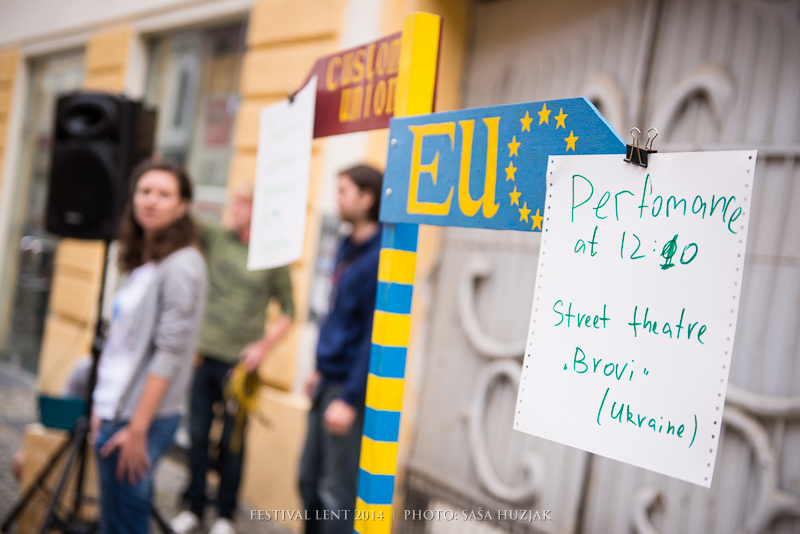 custom
union
EU
Perfomance
at 12:10
Street theatre
„Brovi"
(Ukraine)
FESTIVAL LENT 2014 | PHOTO: SAŠA HUZJAK